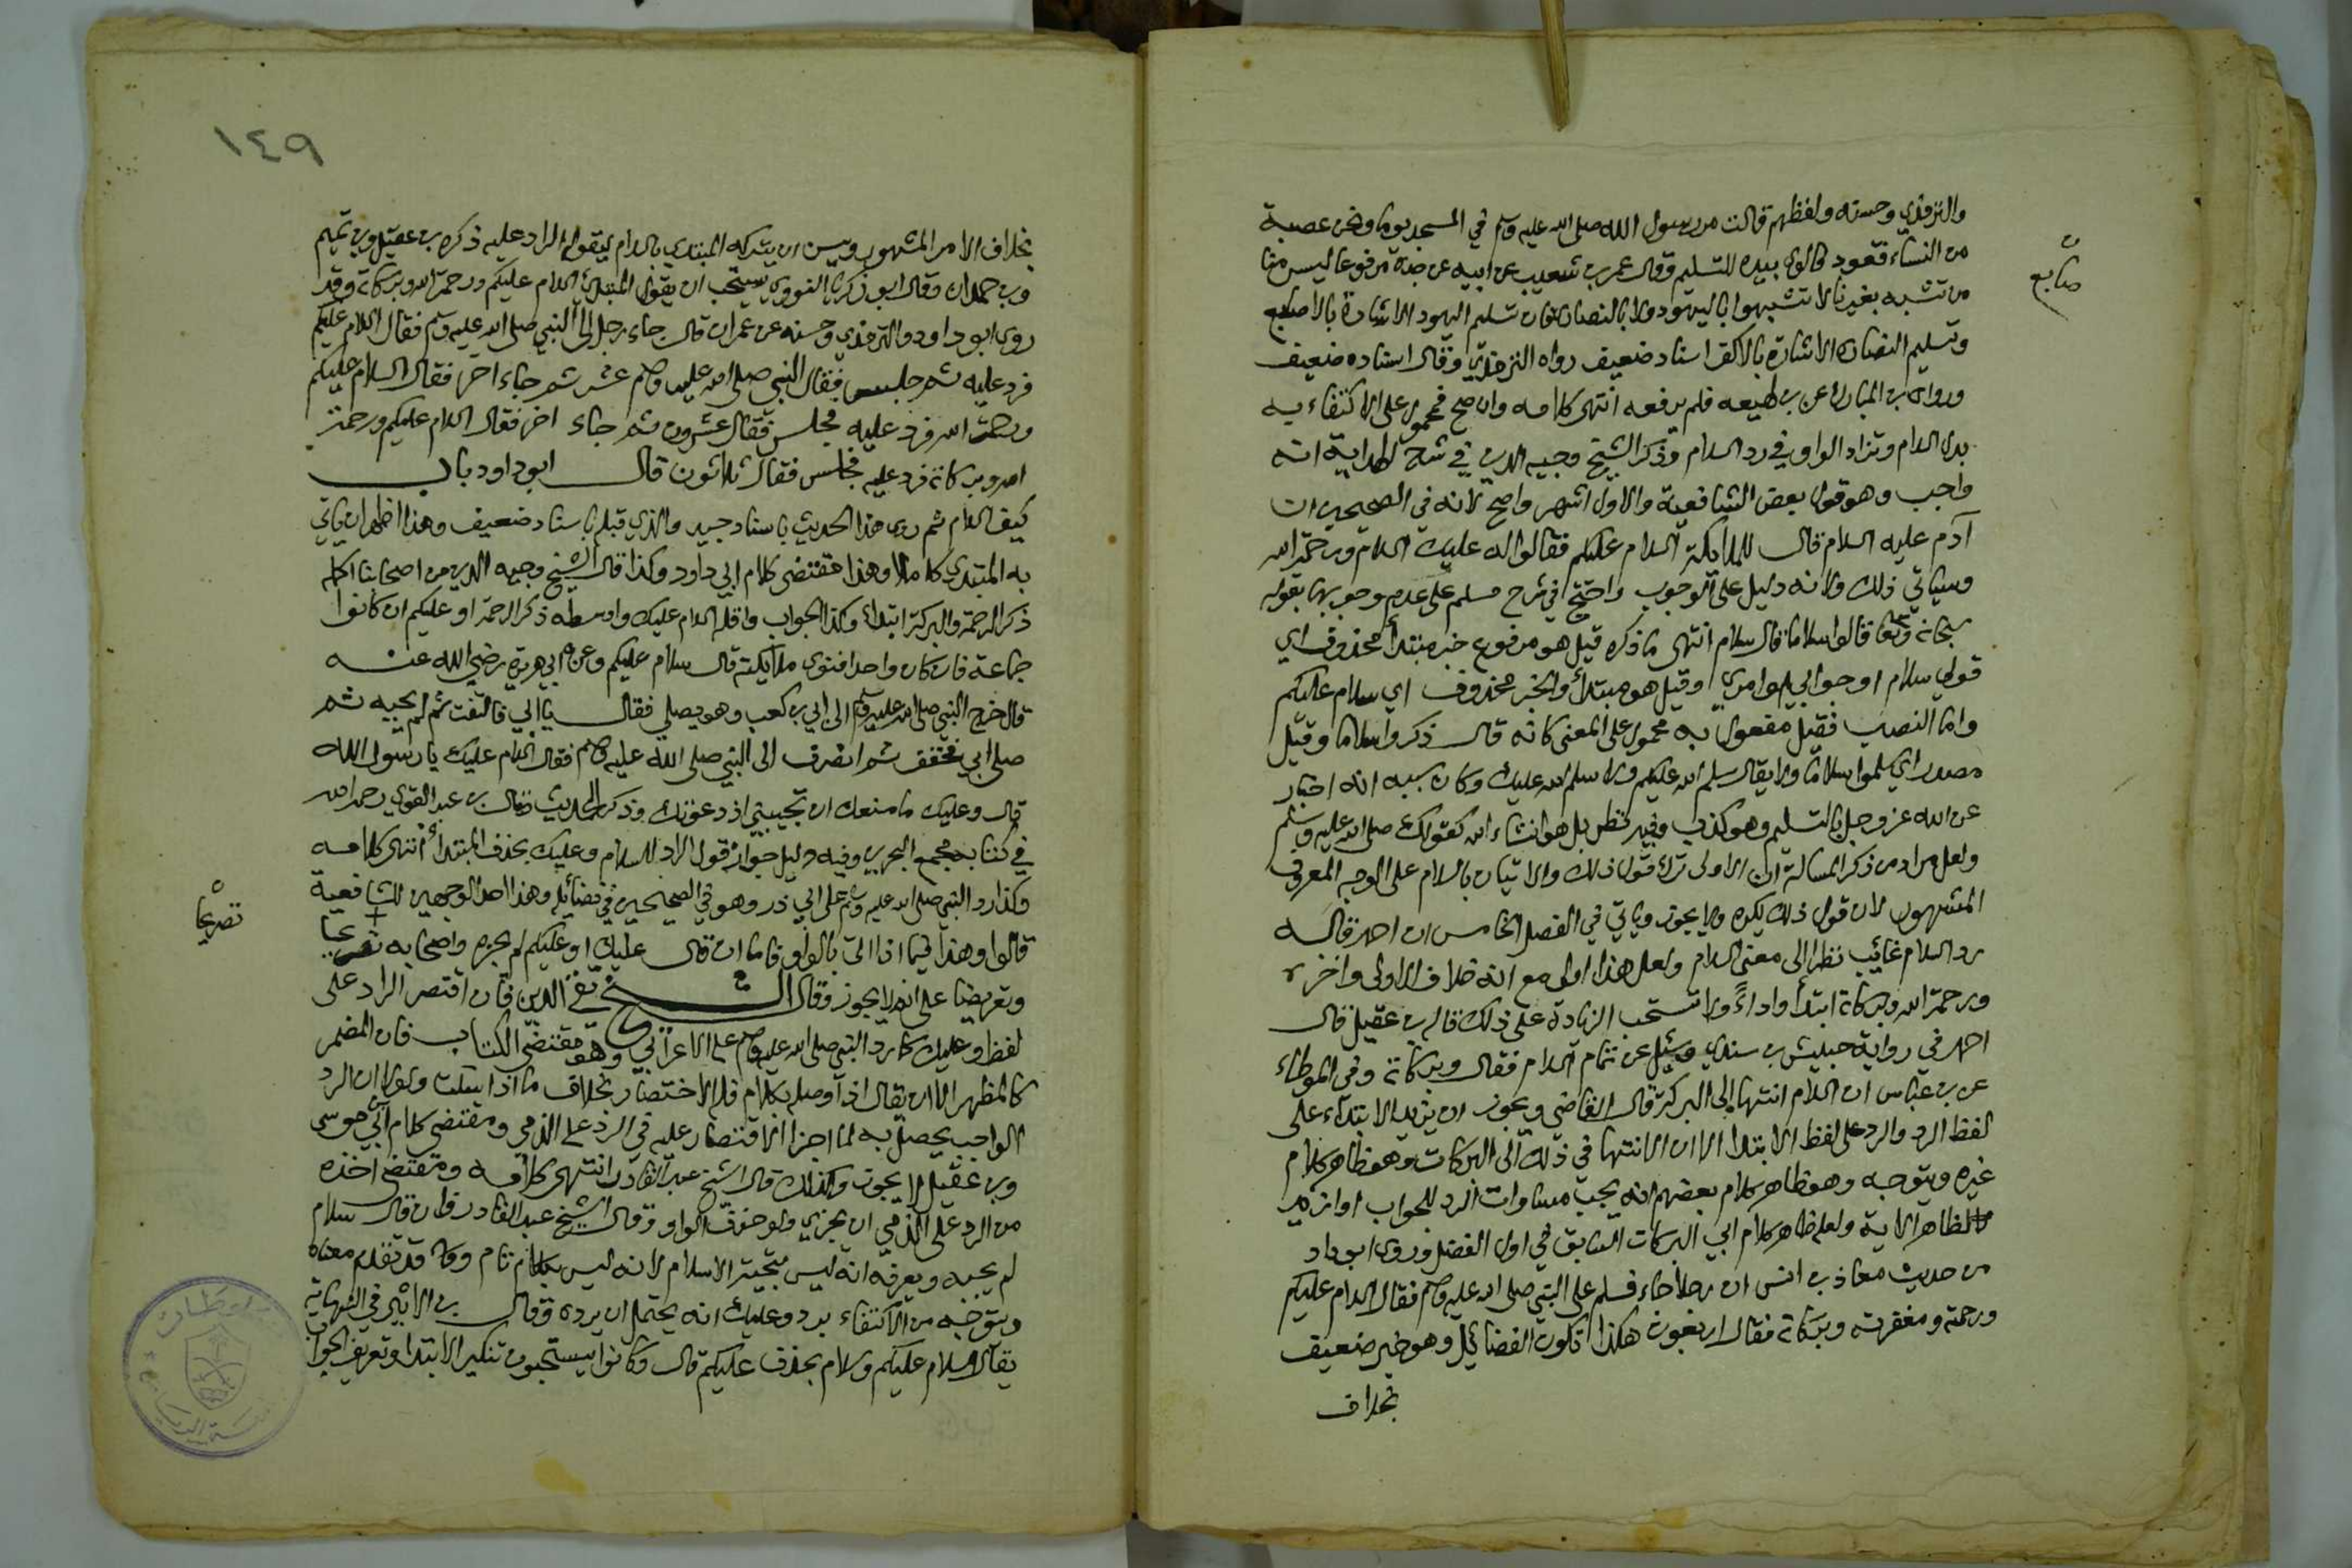 والترمذي وحسنه ولفظهم قالت مر رسول الله صلى الله عليه وسلم في المسجد يوما ونحن عصبة
من النساء قعود فالوى بيده للتسليم وقال عمر بن شعيب عن ابيه عن جده مرفوعا ليس منا
من تشبه بغيرنا لا تشبهوا باليهود ولا بالنصارى فان تسليم اليهود الاشارة بالاصابع
صابع
وتسليم النصارى الاشارة بالاكف اسناد ضعيف رواه الترمذي وقال اسناده ضعيف
ورواه بن المبارك عن بن لهيعه فلم يرفعه انتهى كلامه وان صح فمحمول على الاكتفاء به
بدل السلام وتزاد الواو في رد السلام وذكر الشيخ وجيه الدين في شرح الهداية انه
واجب وهو قول بعض الشافعية والاول اشهر واصح لانه في الصحيحين ان
آدم عليه السلام قال للملايكة السلام عليكم فقالوا له عليك السلام ورحمة الله
وسياتي ذلك ولانه دليل على الوجوب واحتج في شرح مسلم على عدم وجوبها بقوله
سبحانه وتعا قالوا سلاما قال سلام انتهى ما ذكره قيل هو مرفوع خبر مبتدأ محذوف اي
قولي سلام او جوابي او امري وقيل هو مبتدأ والخبر محذوف اي سلام عليكم
واما النصب فقيل مفعول به محمول على المعنى كانه قال ذكروا سلاما وقيل
مصدر اي سلموا سلاما ولا يقال سلم الله عليكم ولا سلم الله عليك وكان سببه انه اخبار
عن الله عز وجل بالتسليم وهو كذب وفيه نظر بل هو انشاء الله كقولك صلى الله عليه وسلم
ولعل مراد من ذكر المسالة ان الاولى ترك قول ذلك والاتيان بالسلام على الوجه المعروف
المشهور لان قول ذلك يكره ولا يجوز وياتي في الفصل الخامس ان احمد قال له
رد السلام غائب نظرا الى معنى السلام ولعل هذا اولى مع انه خلاف الاولى واخره
ورحمة الله وبركاته ابتدأ واداءً ولا تستحب الزيادة على ذلك قاله بن عقيل قال
احمد في رواية حبيش بن سندي وسئل عن تمام السلام فقال وبركاته وفي الموطاء
عن بن عباس ان السلام انتها الى البركة قال القاضي ويجوز ان يزيد الابتداء على
لفظ الرد والرد على لفظ الابتدا الا ان الانتها في ذلك الى البركات وهو ظاهر كلام
غيره ويتوجه وهو ظاهر كلام بعضهم انه يجب مساوات الرد للجواب او ازيد
لظاهر الاية ولعله ظاهر كلام ابي البركات السابق في اول الفصل وروى ابو داد
من حديث معاذ بن انس ان رجلا جاء فسلم على النبي صلى الله عليه وسلم فقال السلام عليكم
ورحمة ومغفرته وبركاته فقال اربعون هكذا تكون الفضائيل وهو خبر ضعيف
بخلاف
١٤٩
بخلاف الامر المشهور ويسن ان يتركه المبتدي بالسلام ليقوله الراد عليه ذكره بن عقيل وبن تميم
وبن حمدان وقال ابو زكريا النووي يستحب ان يقول المبتدئ السلام عليكم ورحمة الله وبركاته وقد
روى ابو داود والترمذي وحسنه عن عمران قال جاء رجل الى النبي صلى الله عليه وسلم فقال السلام عليكم
فرد عليه ثم جلس فقال النبي صلى الله عليه وسلم عشر ثم جاء اخر فقال السلام عليكم
ورحمة الله فرد عليه فجلس فقال عشرون ثم جاء اخر فقال السلام عليكم ورحمة
الله وبركاته فرد عليه فجلس فقال ثلاثون قال ابو داود باب
كيف السلام ثم روى هذا الحديث باسناد جيد والذي قبله باسناد ضعيف وهذا اظهر ان ياتي
به المبتدي كاملا وهذا مقتضى كلام ابي داود وكذا قال الشيخ وجيه الدين من اصحابنا اكمله
ذكر الرحمة والبركة ابتداء وكذا الجواب واقله السلام عليك واوسطه ذكر الرحمة او عليكم ان كانوا
جماعة فان كان واحدا فنوى ملايكته قال سلام عليكم وعن ابي هريرة رضي الله عنه
قال خرج النبي صلى الله عليه وسلم الى ابي بن كعب وهو يصلي فقال يا ابي فالتفت ثم لم يجيبه ثم
صلى ابي فخفف ثم انصرف الى النبي صلى الله عليه وسلم فقال السلام عليك يا رسول الله
قال وعليك ما منعك ان تجيبني اذ دعوتك وذكر الحديث قال بن عبد القوي رحمه الله
في كتابه مجمع البحرين وفيه دليل جواز قول الراد للسلام وعليك بحذف المبتدأ انتهى كلامه
وكذا رد النبي صلى الله عليه وسلم على ابي ذر وهو في الصحيحين في فضائيله وهذا احد الوجهين للشافعية
قالوا وهذا فيما اذا اتى بالواو فاما ان قال عليك او عليكم لم يجزه واصحابه تصريحا
تصريحا
وتعريضا على انه لا يجوز وقال الشيخ تقي الدين فان اقتصر الراد على
لفظ وعليك كما رد النبي صلى الله عليه وسلم على الاعرابي وهو مقتضى الكتاب فان المضمر
كالمظهر الا ان يقال اذا وصله بكلام فله الاختصار بخلاف ما اذا سكت ولولا ان الرد
الواجب يحصل به لما اجزا الاقتصار عليه في الرد على الذمي ومقتضى كلام بن ابي موسى
وبن عقيل لا يجوز وكذلك قال الشيخ عبد القادر انتهى كلامه ومقتضى اخذه
من الرد على الذمي ان يجزي ولو حذف الواو وقال الشيخ عبد القادر فان قال سلام
لم يجبه ويعرفه انه ليس بتحية الاسلام لانه ليس بكلام تام وقد تقدم معناه
ويتوجه من الاكتفاء برد وعليك انه يحتمل ان يرده وقال بن الاثير في النهاية
يقال السلام عليكم وسلام بحذف عليكم قال وكانوا يستحبون تنكير الابتدا وتعريف الجواب